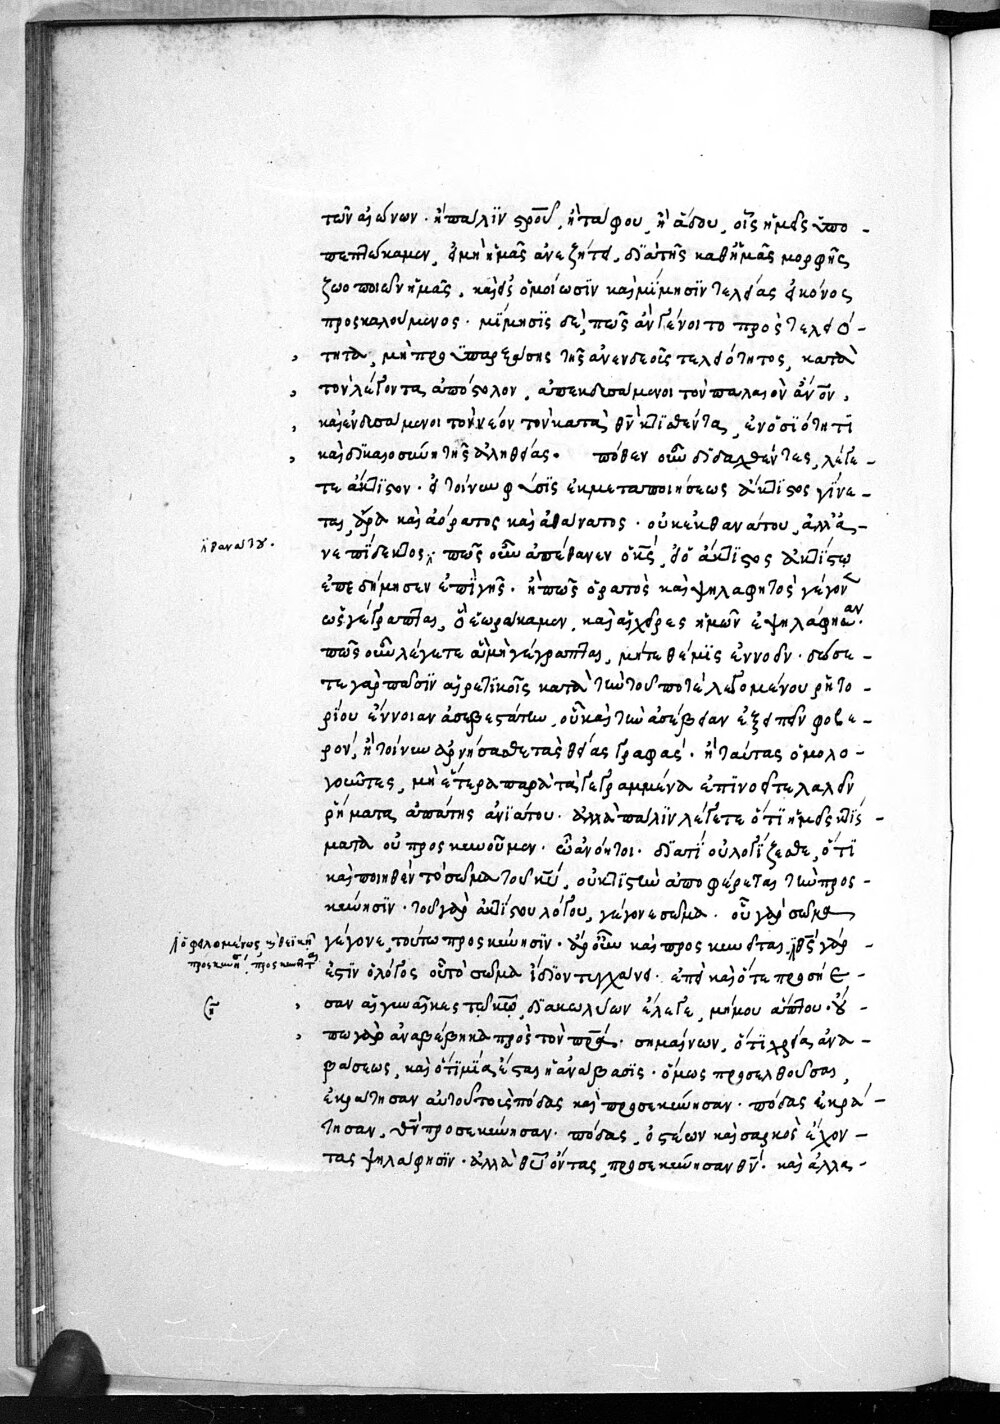 τῶν αἰώνων. ἢ πάλιν σροῦ, ἢ τάφου, ἢ ἅδου, οἷς ἡμεῖς ὑπο-
πεπτώκαμεν, εἰ μὴ ἡμᾶς ἀνεζήτει, διὰ τῆς καθ' ἡμᾶς μορφῆς
ζωοποιῶν ἡμᾶς, καὶ εἰς ὁμοίωσιν καὶ μίμησιν τελείας εἰκόνος
προσκαλούμενος. μίμησις δὲ, πῶς ἂν γένοιτο πρὸς τελειό-
τητα, μὴ προϋπαρξάσης τῆς ἀνενδεοῦς τελειότητος, κατὰ
τὸν λέγοντα ἀπόστολον, ἀπεκδυσάμενοι τὸν παλαιὸν ἄνον,
καὶ ἐνδυσάμενοι τὸν νέον τὸν κατὰ θν κτισθέντα, ἐν ὁσιότητι
καὶ δικαιοσύνη τῆς ἀληθείας. πόθεν οὖν διδαχθέντες, λέγε-
τε ἄκτιστον. εἰ τοίνυν φύσις ἐκ μεταποιήσεως ἄκτιστος γίνε-
ται, ἄρα καὶ ἀόρατος καὶ ἀθάνατος. οὐκ ἐκ θανάτου, ἀλλ' ἀ-
νεπίδεκτος πῶς οὖν ἀπέθανεν ὁ κς, εἰ ὁ ἄκτιστος ἀκτίστω
θανάτου.
ἐπεδήμησεν ἐπὶ γῆς. ἢ πῶς ὁρατὸς καὶ ψηλαφητὸς γέγον
ὡς γέγραπται, ὃ ἑωράκαμεν, καὶ αἱ χεῖρες ἡμῶν ἐψηλάφησαν.
πῶς οὖν λέγετε ἃ μὴ γέγραπται, μήτε θέμις ἐννοεῖν. δώσε-
τε γὰρ πᾶσιν αἱρετικοῖς κατὰ τὴν τοῦ ποτὲ λεγομένου ῥητο-
ρίου ἔννοιαν ἀσεβεστάτων, οὗ καὶ τὴν ἀσέβειαν ἐξειπεῖν φοβε-
ρόν, ἢ τοίνυν ἀρνήσασθε τὰς θείας γραφάς. ἢ ταύτας ὁμολο-
γοῦντες, μὴ ἕτερα παρὰ τὰ γεγραμμένα ἐπινοεῖτε λαλεῖν
ῥήματα ἀπάτης ἀνιάτου. ἀλλὰ πάλιν λέγετε ὅτι ἡμεῖς κτίσ-
ματα οὐ προσκυνοῦμεν. ὦ ἀνόητοι. διατί οὐ λογίζεσθε, ὅτι
καὶ ποιηθὲν τὸ σῶμα τοῦ κυ, οὐ κτιστὴν ἀποφέρεται τὴν προσ-
κύνησιν. τοῦ γὰρ ἀκτίστου λόγου, γέγονε σῶμα. οὗ γὰρ σῶμα
γέγονε, τούτω προσκύνησιν. ἄρ' οὖν καὶ προσκυνεῖται, θς γάρ
ὀφειλομένως κ θεϊκη
προσκυνῆ, προσκυνεῖτ
ἐστιν ὁ λόγος οὗ τὸ σῶμα ἴδιον τυγχάνει. ἐπεὶ καὶ ὅτε προσήε-
σαν αἱ γυναῖκες τῷ κω, διακωλύων ἔλεγε, μή μου ἅπτου. οὔ-
πω γὰρ ἀναβέβηκα πρὸς τὸν πρα. σημαίνων, ὅτι χρεία ἀνα-
βάσεως, καὶ ὅτι μία ἔσται ἡ ἀνάβασις. ὅμως προσελθοῦσαι,
ἐκράτησαν αὐτοῦ τοὺς πόδας καὶ προσεκύνησαν. πόδας ἐκρά-
τησαν, θν προσεκύνησαν. πόδας, ὀστέων καὶ σαρκὸς ἔχον-
τας ψηλάφησιν. ἀλλὰ θυ ὄντας, προσεκύνησαν θν. καὶ ἀλλα-